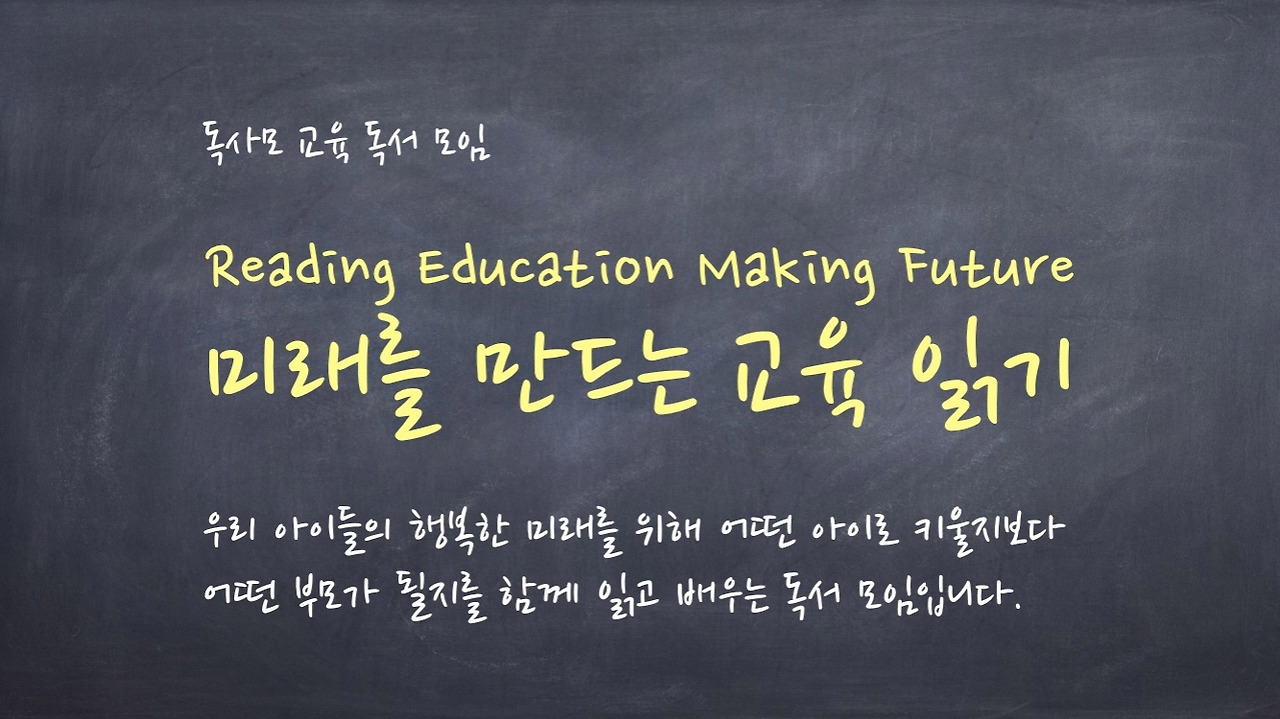 독사모 교육 독서 모임
Reading Education Making Future
미래를 만드는 교육 읽기
우리 아이들의 행복한 미래를 위해 어떤 아이로 키울지보다
어떤 부모가 될지를 함께 읽고 배우는 독서 모임입니다.